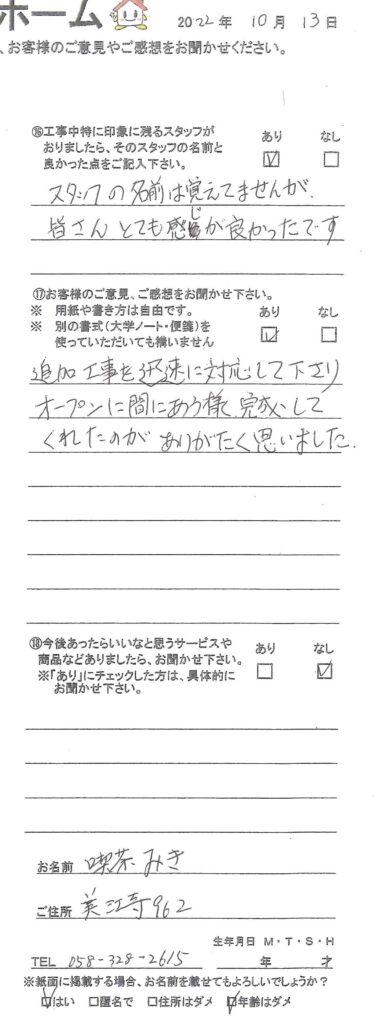 ホーム
2022年 10月 13日
、お客様のご意見やご感想をお聞かせください。
⑯工事中特に印象に残るスタッフが
おりましたら、そのスタッフの名前と
良かった点をご記入下さい。
あり なし
☑ □
スタッフの名前は覚えてませんが、
皆さん とても感じが良かったです
⑰お客様のご意見、ご感想をお聞かせ下さい。
※ 用紙や書き方は自由です。
※ 別の書式(大学ノート・便箋)を
使っていただいても構いません
あり なし
☑ □
追加工事を迅速に対応して下さり
オープンに間にあう様、完成して
くれたのが ありがたく思いました.
⑱今後あったらいいなと思うサービスや
商品などありましたら、お聞かせ下さい。
※「あり」にチェックした方は、具体的に
お聞かせ下さい。
あり なし
□ ☑
お名前 喫茶 みき
ご住所 美江寺962
生年月日 M・T・S・H
TEL 058-328-2615 年 才
※紙面に掲載する場合、お名前を載せてもよろしいでしょうか?
☑はい □匿名で □住所はダメ ☑年齢はダメ